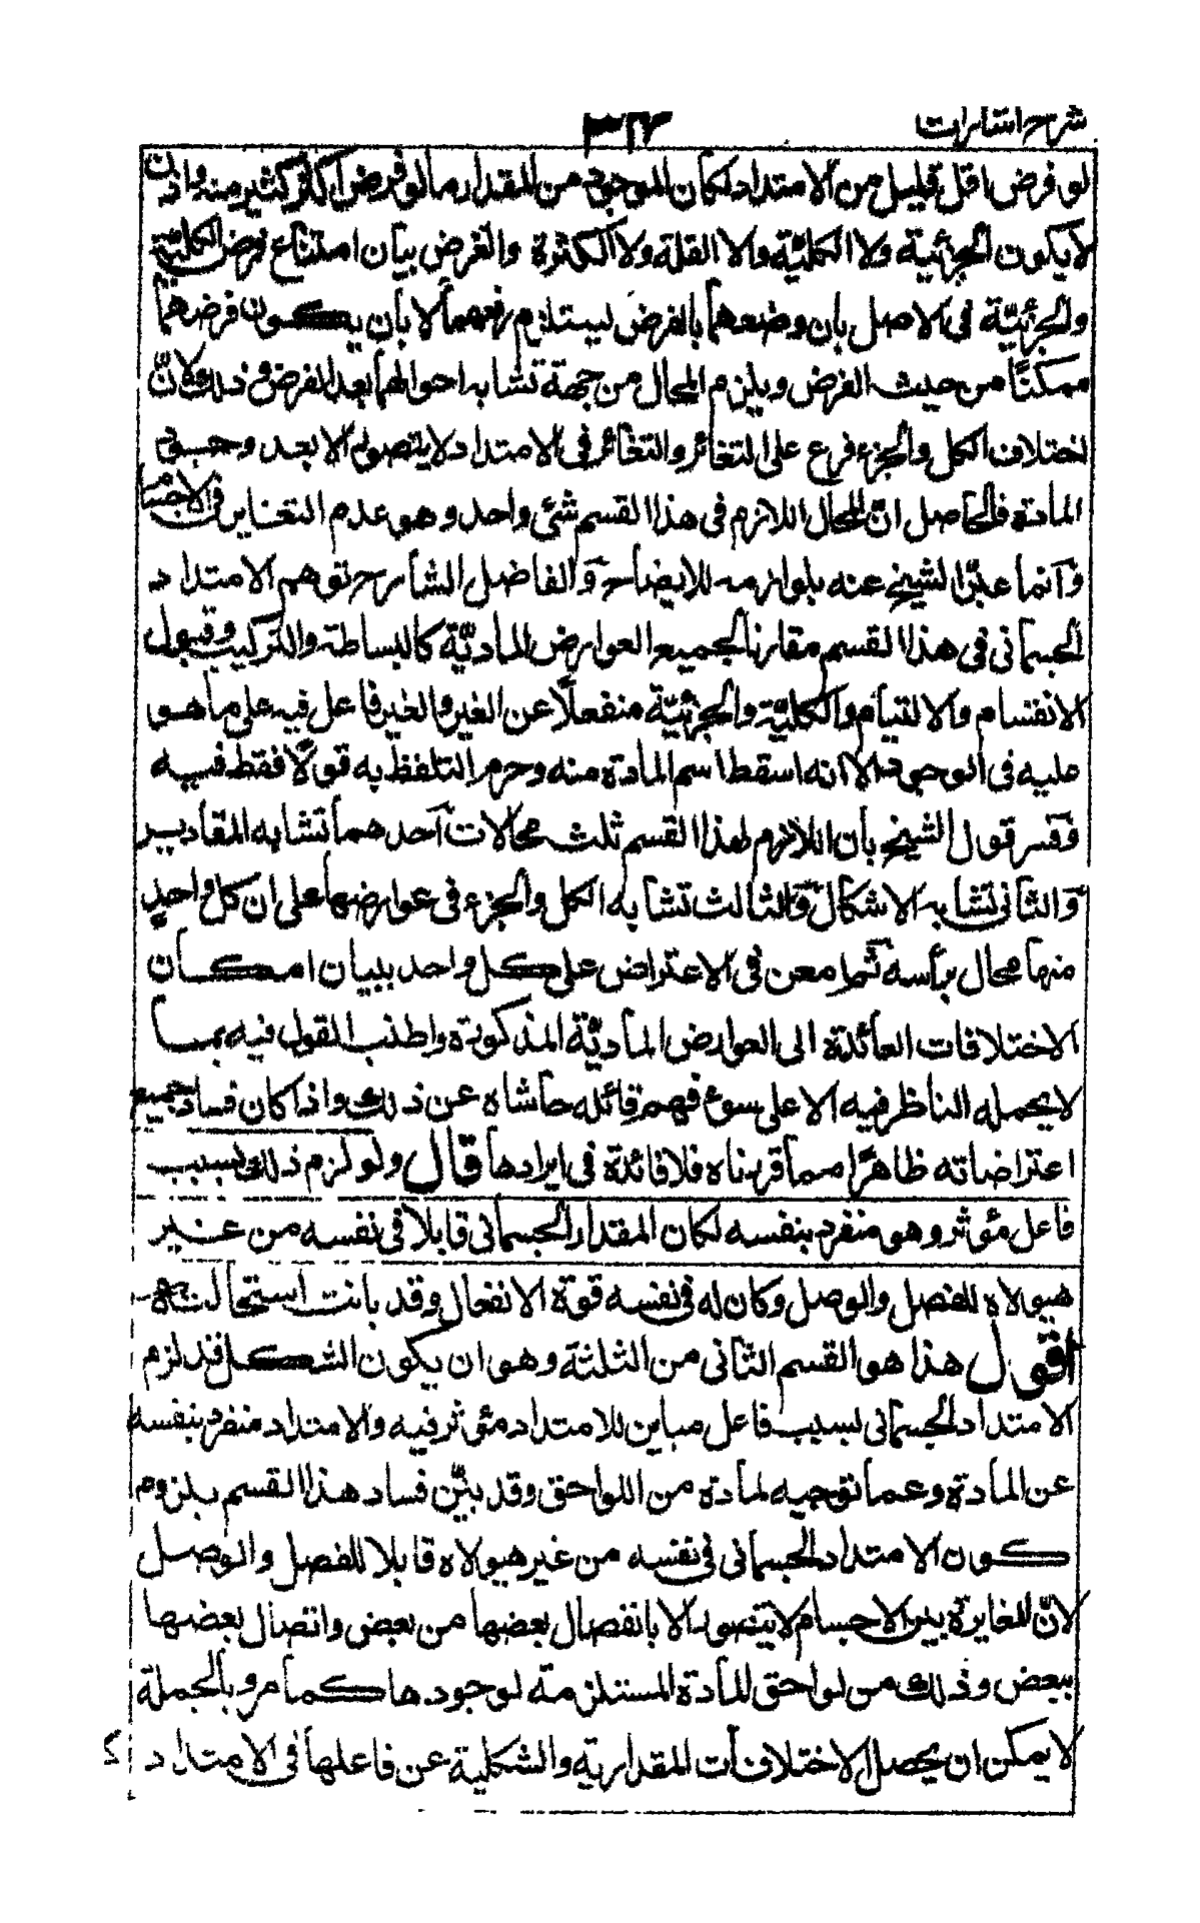 شرح اشارات
لو فرض اقل قليل من الامتداد لكان الموجود من المقدار ما لو فرض اكثر كثير منه واذن
لا يكون الجزئية ولا الكلية والا القلة ولا الكثرة والغرض بيان امتناع فرض الكلية
والجزئيّة فى الاصل بان وضعهما بالفرض يستلزم رفعهما لا بان يكون فرضهما
ممكنًا من حيث الفرض ويلزم المحال من جهة تشابه احوالهما بعد الفرض وذلك لانّ
اختلاف الكل والجزء فرع على التغائر والتغائر فى الامتداد لا يتصور الا بعد وجود
المادة فالحاصل انّ المحال اللازم فى هذا القسم شئ واحد وهو عدم التغاير فى الاجسام
وآنما عبّر الشيخ عنه بلوازمه للايضاح وآلفاضل الشارح توهم الامتداد
الجسمانى فى هذا القسم مقارنا لجميع العوارض الماديّة كالبساطة والتركيب وقبول
الانقسام والالتيام والكليّة والجزئيّة منفعلًا عن الغير والغير فاعل فيه على ما هو
عليه فى الوجود الا انه اسقط اسم المادة منه وحرم التلفظ به قولًا فقط فيه
ففسر قول الشيخ بان اللازم لهذا القسم ثلث محالات آحدهما تشابه المقادير
والثانى تشابه الاشكال والثالث تشابه الكل والجزء فى عوارضها على ان كل واحدٍ
منها محال برأسه ثمّ امعن فى الاعتراض على كل واحد ببيان امكان
الاختلافات العائدة الى العوارض الماديّة المذكورة واطنب القول فيه بما
لا يحمله الناظر فيه الا على سوء فهم قائله حاشاه عن ذلك واذا كان فساد جميع
اعتراضاته ظاهرًا مما قررناه فلا فائدة فى ايرادها قال ولو لزم ذلك بسبب
فاعل مؤثر وهو منفرد بنفسه لكان المقدار الجسمانى قابلا فى نفسه من غير
هيولاه للفصل والوصل وكان له فى نفسه قوة الانفعال وقد بانت استحالت هذه
اقول هذا هو القسم الثانى من الثلثة وهو ان يكون الشكل قد لزم
الامتداد الجسمانى بسبب فاعل مباين للامتداد مؤثر فيه والامتداد منفرد بنفسه
عن المادة وعما توجبه المادة من اللواحق وقد بيّن فساد هذا القسم بلزوم
كون الامتداد الجسمانى فى نفسه من غير هيولاه قابلا للفصل والوصل
لانّ المغايرة بين الاجسام لا يتصور الا بانفصال بعضها من بعض واتصال بعضها
ببعض وذلك من لواحق المادة المستلزمة لوجودها كما مر وبالجملة
لا يمكن ان يحصل الاختلافات المقدارية والشكلية عن فاعلها فى الامتداد